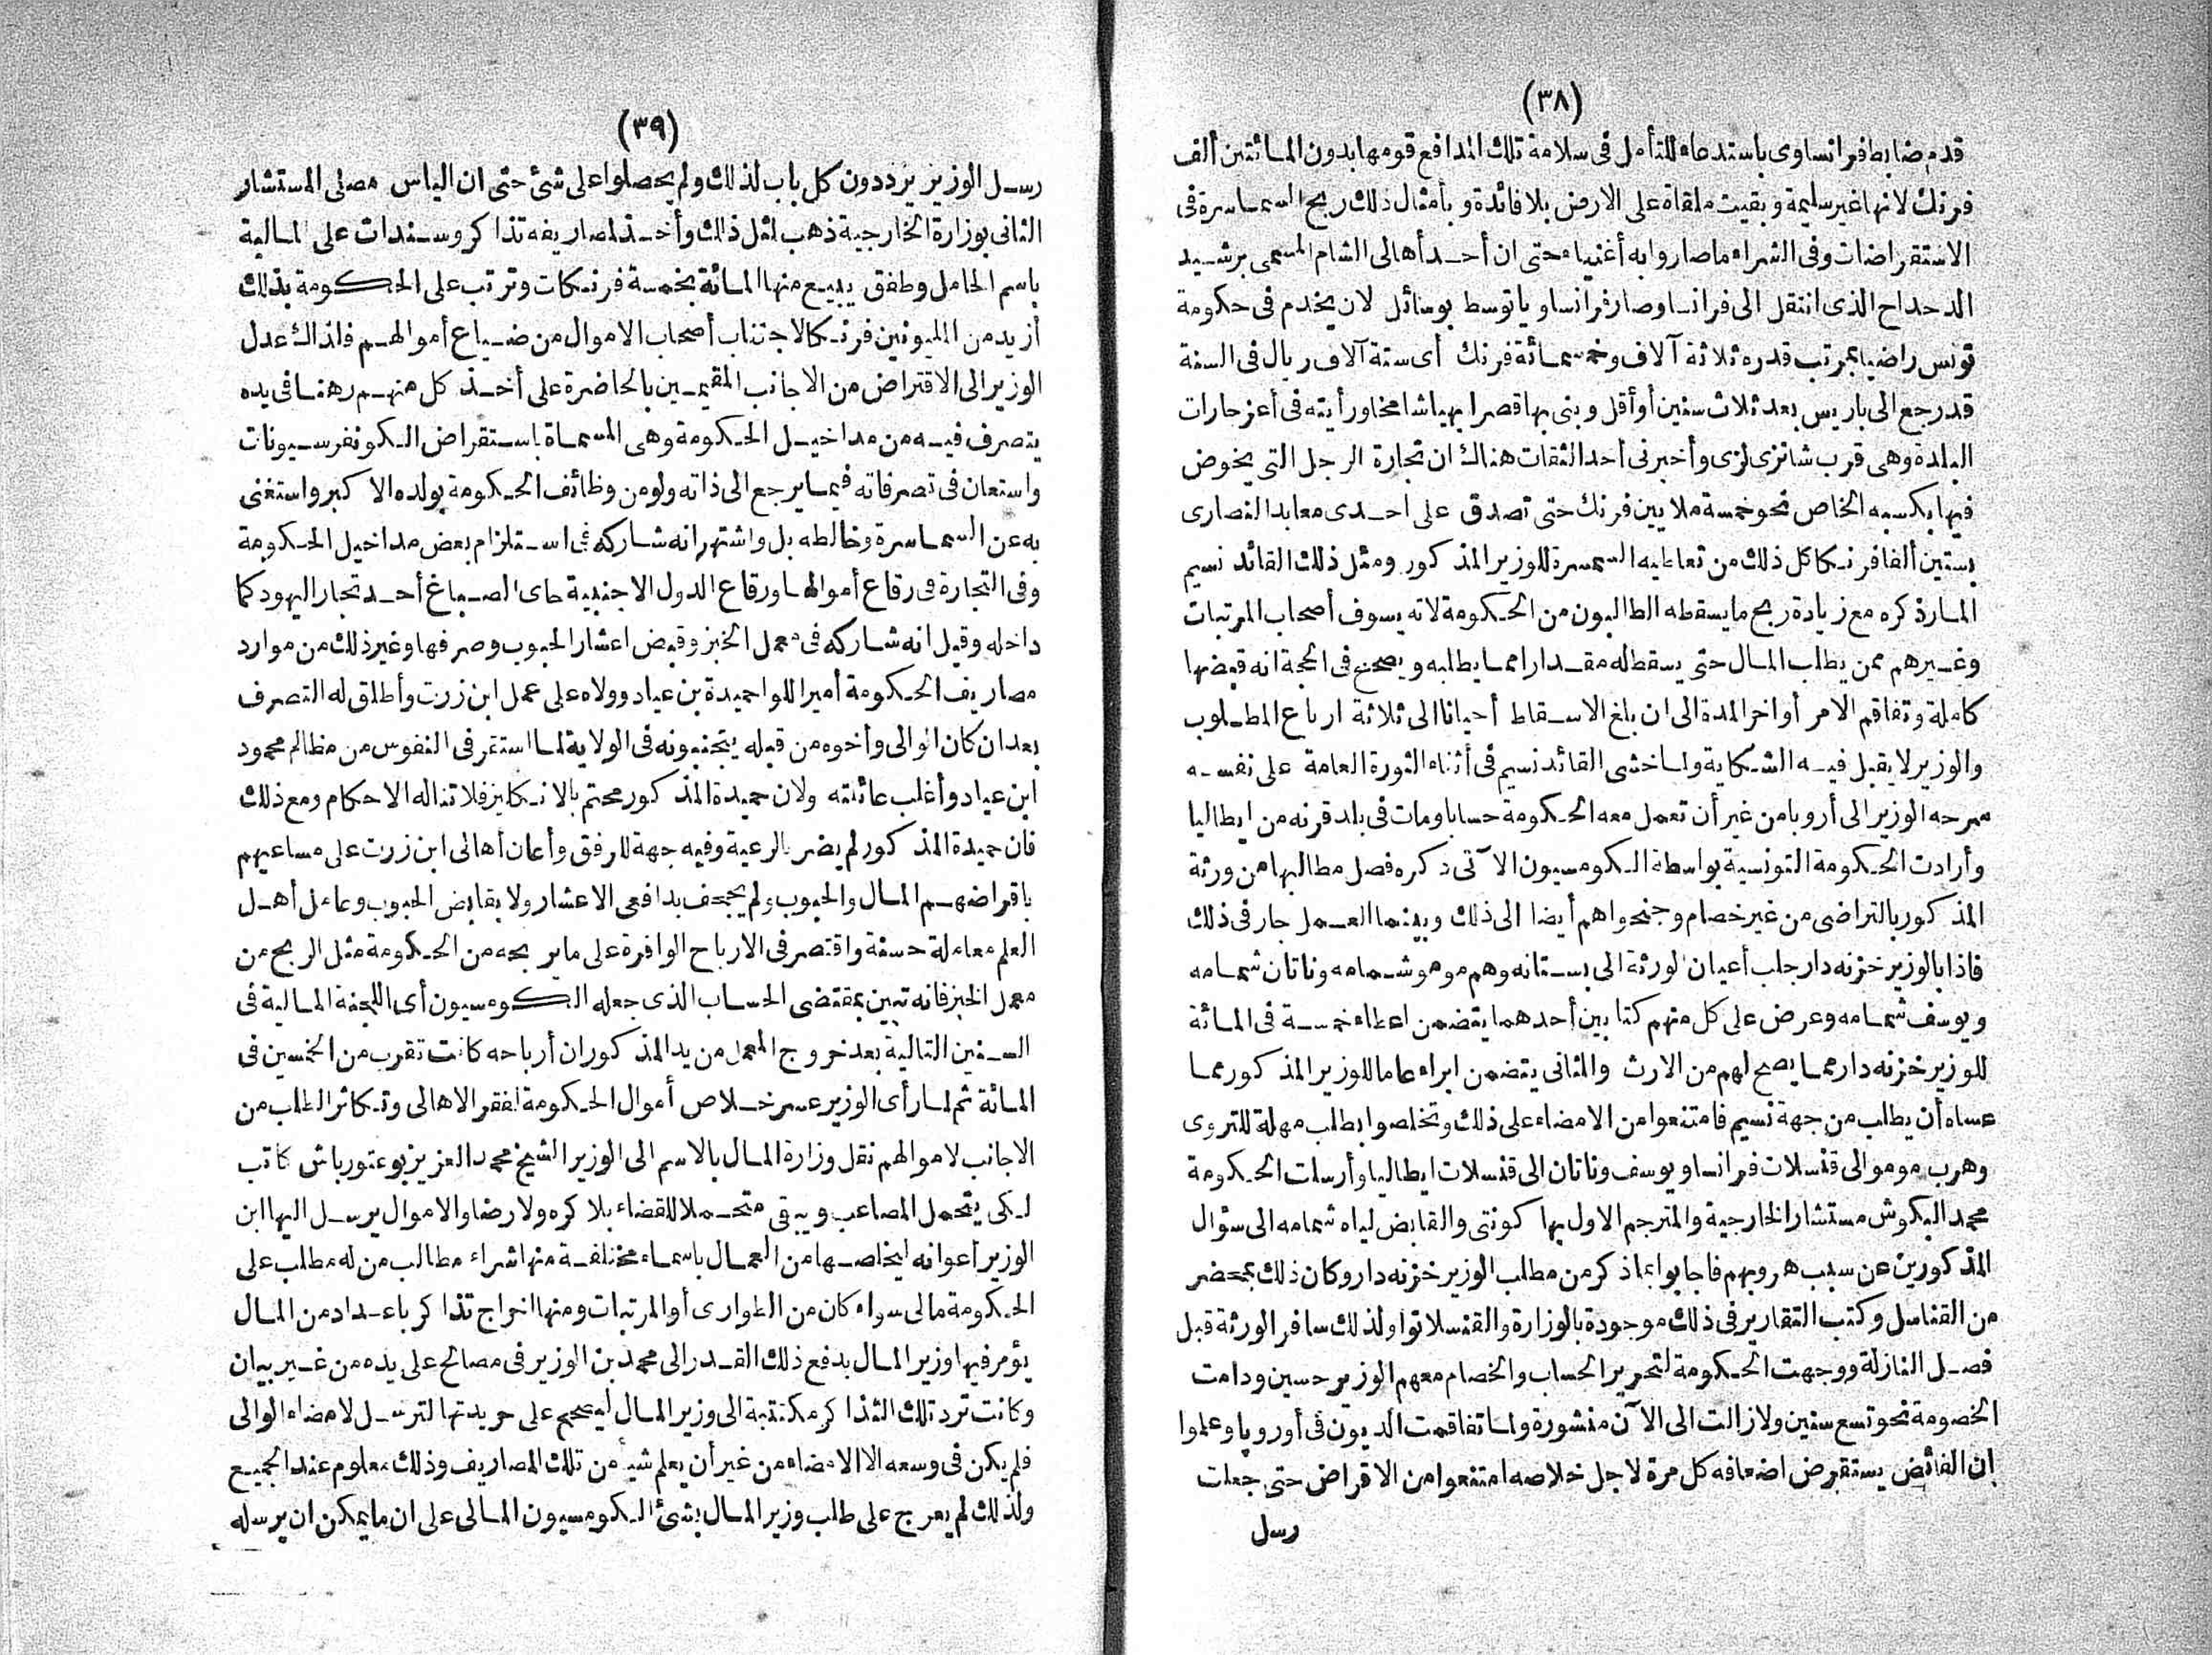 (٣٨)
قدم ضابط فرانساوى باستدعاء للتأمل فى سلامة تلك المدافع قومها بدون المائتين ألف
فرنك لانها غير سليمة وبقيت ملقاة على الارض بلا فائدة و بأمثال ذلك ربح السماسرة فى
الاستقراضات وفى الشراء ما صاروا به أغنياء حتى ان أحد أهالى الشام المسمى برشيد
الدحداح الذى انتقل الى فرانسا وصار فرانساويا توسط بوسائل لان يخدم فى حكومة
تونس راضيا بمرتب قدره ثلاثة آلاف وخمسمائة فرنك أى ستة آلاف ريال فى السنة
قد رجع الى باريس بعد ثلاث سنين أو أقل و بنى بها قصرا بهيا شامخا ورأيته فى أعز حارات
البلدة وهى قرب شانزى لزى وأخبرنى أحد الثقات هناك ان تجارة الرجل التى يخوض
فيها بكسبه الخاص نحو خمسة ملايين فرنك حتى تصدق على احدى معابد النصارى
بستين ألفا فرنكا كل ذلك من تعاطيه السمسرة للوزير المذكور ومثل ذلك القائد نسيم
المار ذكره مع زيادة ربح ما يسقطه الطالبون من الحكومة لانه يسوف أصحاب المرتبات
وغيرهم ممن يطلب المال حتى يسقط له مقدارا مما يطلبه و يصحح فى الحجة انه قبضها
كاملة وتفاقم الامر أواخر المدة الى ان بلغ الاسقاط أحيانا الى ثلاثة ارباع المطلوب
والوزير لا يقبل فيه الشكاية ولما خشى القائد نسيم فى أثناء الثورة العامة على نفسه
سرحه الوزير الى أروبا من غير أن تعمل معه الحكومة حسابا ومات فى بلد قرنه من ايطاليا
وأرادت الحكومة التونسية بواسطة الكومسيون الآتى ذكره فصل مطالبها من ورثة
المذكور بالتراضى من غير خصام وجنحوا هم أيضا الى ذلك وبينما العمل جار فى ذلك
فاذا بالوزير خزنه دار جلب أعيان الورثة الى بستانه وهم مومو شمامه وناتان شمامه
و يوسف شمامه وعرض على كل منهم كتابين أحدهما يتضمن اعطاء خمسة فى المائة
للوزير خزنه دار مما يصح لهم من الارث والثانى يتضمن ابراء عاما للوزير المذكور مما
عساه أن يطلب من جهة نسيم فامتنعوا من الامضاء على ذلك وتخلصوا بطلب مهلة للتروى
وهرب مومو الى قنسلات فرانسا ويوسف وناتان الى قنسلات ايطاليا وأرسلت الحكومة
محمد البكوش مستشار الخارجية والمترجم الاول بها كونتى والقابض لياه شمامه الى سؤال
المذكورين عن سبب هروبهم فاجابوا بما ذكر من مطلب الوزير خزنه دار وكان ذلك بمحضر
من القناسل وكتب التقارير فى ذلك موجودة بالوزارة والقنسلاتوا ولذلك سافر الورثة قبل
فصل النازلة ووجهت الحكومة لتحرير الحساب والخصام معهم الوزير حسين ودامت
الخصومة نحو تسع سنين ولا زالت الى الآن منشورة ولما تفاقمت الديون فى أوروپا وعلموا
ان الفائض يستقرض اضعافه كل مرة لاجل خلاصه امتنعوا من الاقراض حتى جعلت
رسل
(٣٩)
رسل الوزير يترددون كل باب لذلك ولم يحصلوا على شئ حتى ان الياس مصلى المستشار
الثانى بوزارة الخارجية ذهب لمثل ذلك وأخذ لمصاريفه تذاكر وسندات على المالية
باسم الحامل وطفق يبيع منها المائة بخمسة فرنكات وترتب على الحكومة بذلك
أزيد من المليونين فرنكا لاجتناب أصحاب الاموال من ضياع أموالهم فاذ ذاك عدل
الوزير الى الاقتراض من الاجانب المقيمين بالحاضرة على أخذ كل منهم رهنا فى يده
يتصرف فيه من مداخيل الحكومة وهى المسماة باستقراض الكونفرسيونات
واستعان فى تصرفاته فيما يرجع الى ذاته ولو من وظائف الحكومة بولده الاكبر واستغنى
به عن السماسرة وخالطه بل واشتهر انه شاركه فى استلزام بعض مداخيل الحكومة
وفى التجارة فى رقاع أموالها ورقاع الدول الاجنبية حاى الصباغ أحد تجار اليهود كما
داخله وقيل انه شاركه فى معمل الخبز وقبض اعشار الحبوب وصرفها وغير ذلك من موارد
مصاريف الحكومة أمير اللوا حميدة بن عياد وولاه على عمل ابن زرت وأطلق له التصرف
بعد ان كان الوالى وأخوه من قبله يتجنبونه فى الولاية لما استقر فى النفوس من مظالم محمود
ابن عياد وأغلب عائلته ولان حميدة المذكور محتم بالانكليز فلا تناله الاحكام ومع ذلك
فان حميدة المذكور لم يضر بالرعية وفيه جهة للرفق وأعان أهالى ابن زرت على مساعيهم
باقراضهم المال والحبوب ولم يجحف بدافعى الاعشار ولا بقابض الحبوب وعامل أهل
العلم معاملة حسنة واقتصر فى الارباح الوافرة على ما يربحه من الحكومة مثل الربح من
معمل الخبز فانه تبين بمقتضى الحساب الذى جعله الكومسيون أى اللجنة المالية فى
السنين التالية بعد خروج المعمل من يد المذكور ان أرباحه كانت تقرب من الخمسين فى
المائة ثم لما رأى الوزير عسر خلاص أموال الحكومة لفقر الاهالى وتكاثر الطلب من
الاجانب لاموالهم نقل وزارة المال بالاسم الى الوزير الشيخ محمد العزيز بوعتور باش كاتب
لكى يتحمل المصاعب ويبقى متحملا للقضاء بلا كره ولا رضا والاموال يرسل اليها ابن
الوزير أعوانه ليخلصها من العمال باسماء مختلفة منها شراء مطالب من له مطلب على
الحكومة مالى سواء كان من الطوارى أو المرتبات ومنها اخراج تذاكر باعداد من المال
يؤمر فيها وزير المال بدفع ذلك القدر الى محمد بن الوزير فى مصالح على يده من غير بيان
وكانت ترد تلك التذاكر مكتتبة الى وزير المال ليصحح على جريدتها لترسل لامضاء الوالى
فلم يكن فى وسعه الا الامضاء من غير أن يعلم شيأ من تلك المصاريف وذلك معلوم عند الجميع
ولذلك لم يعرج على طلب وزير المال بشئ الكومسيون المالى على ان ما يمكن ان يرسله